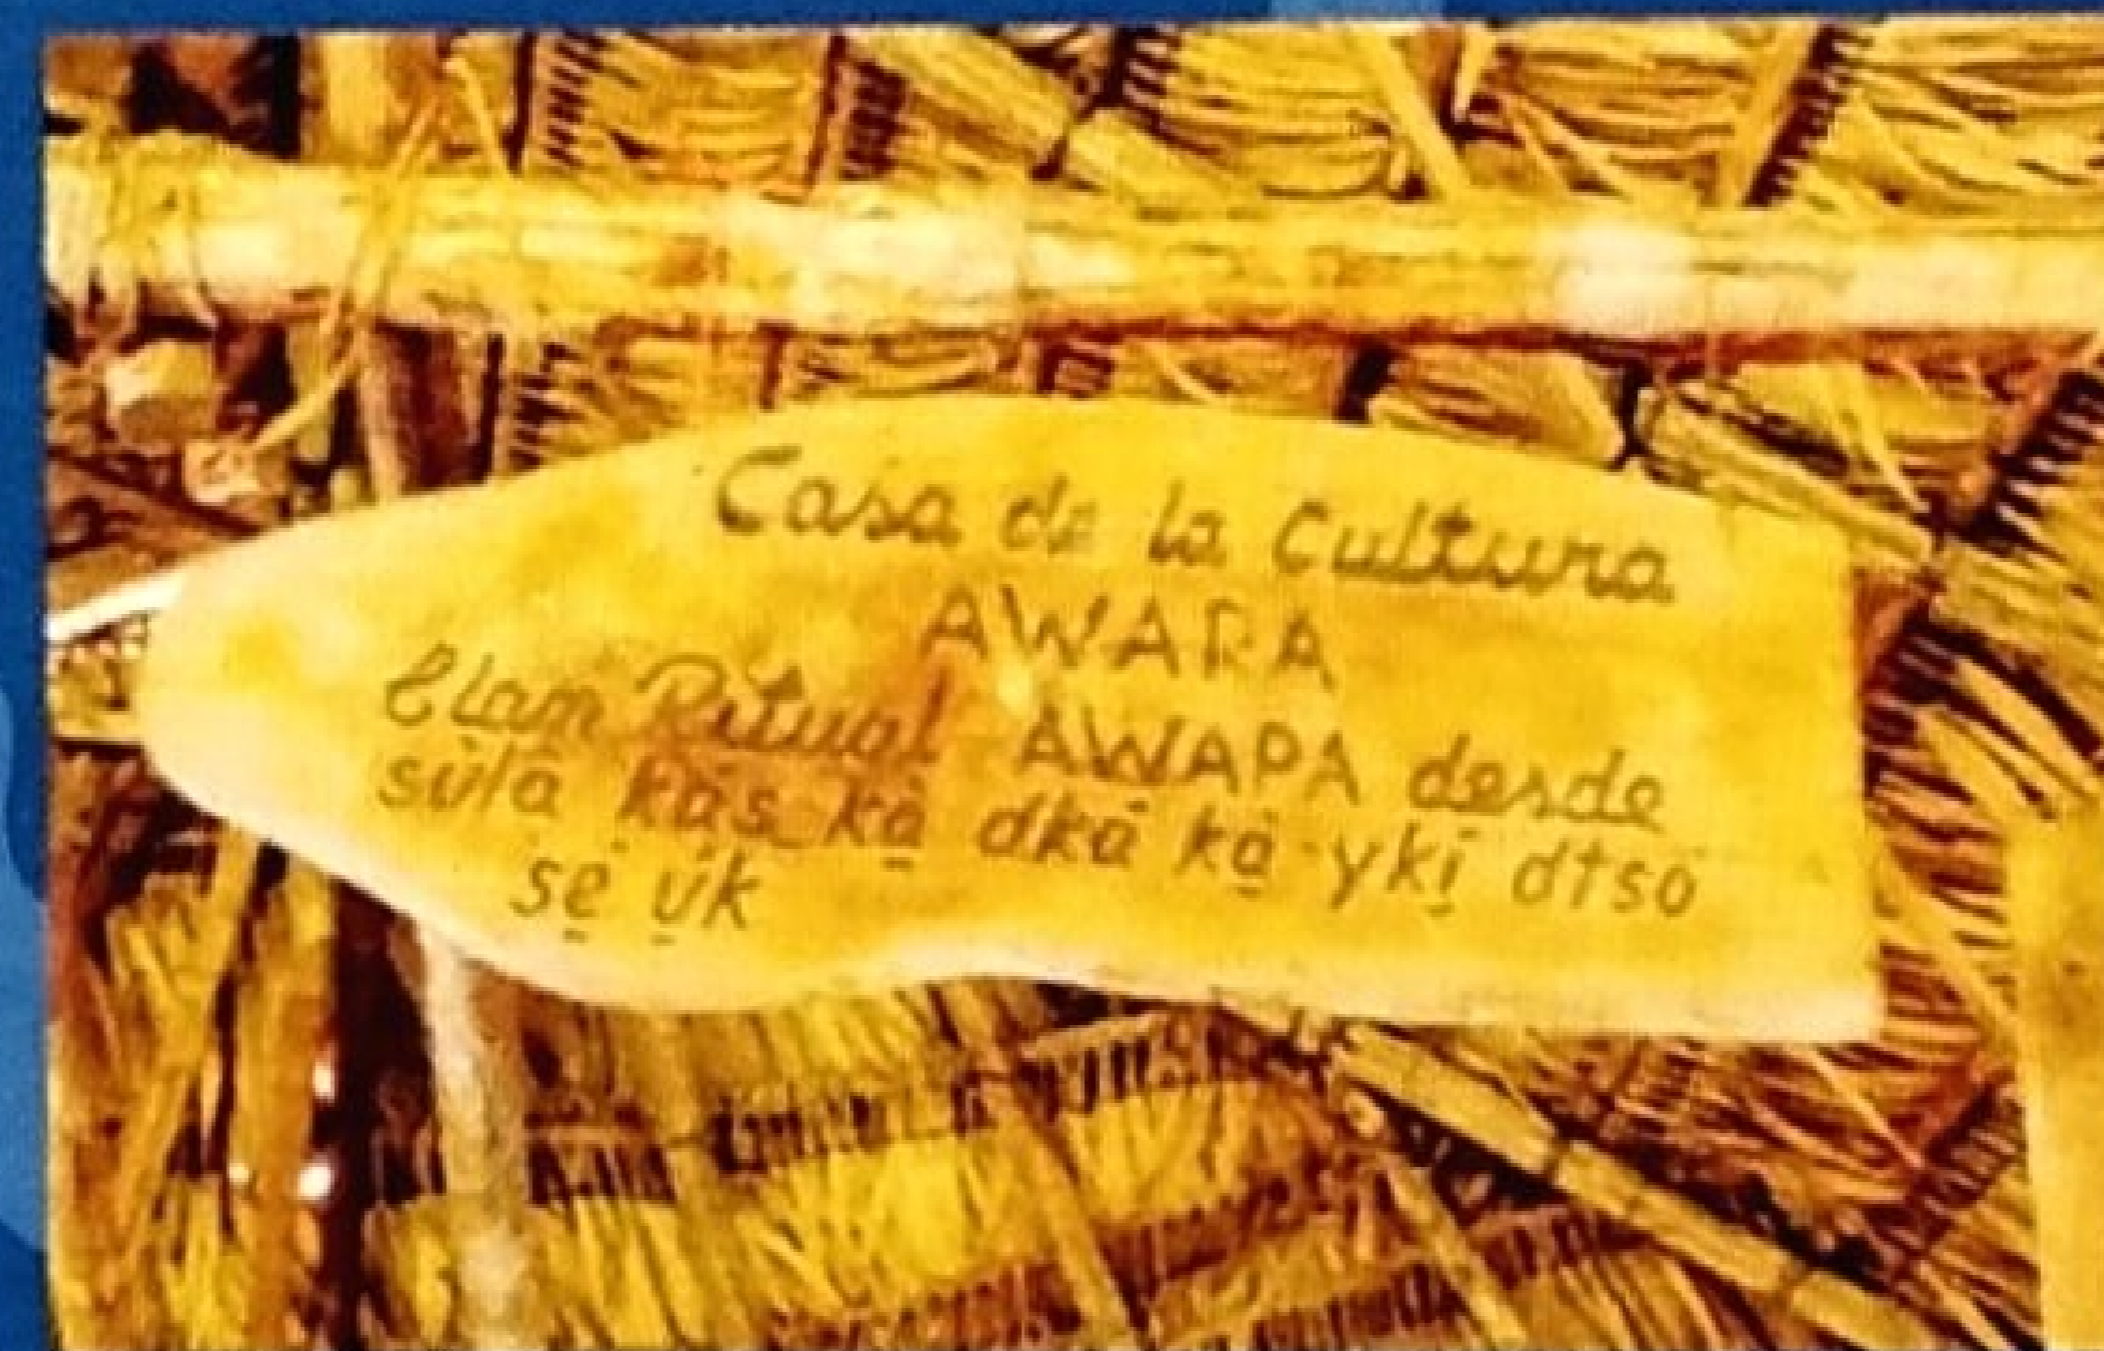 Casa de la Cultura
AWAPA
Clan Ritual AWAPA desde
sùlâ kás kà̱ dkä́ kà̱ ykí̱ dtsö
se̱ ú̱k